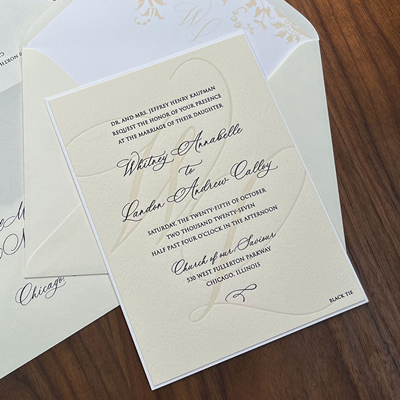 DR. AND MRS. JEFFREY HENRY KAUFMAN
REQUEST THE HONOR OF YOUR PRESENCE
AT THE MARRIAGE OF THEIR DAUGHTER
Whitney Annabelle
to
Landon Andrew Calley
SATURDAY, THE TWENTY-FIFTH OF OCTOBER
TWO THOUSAND TWENTY-SEVEN
HALF PAST FOUR O'CLOCK IN THE AFTERNOON
Church of our Saviour
530 WEST FULLERTON PARKWAY
CHICAGO, ILLINOIS
BLACK TIE
Chicago,